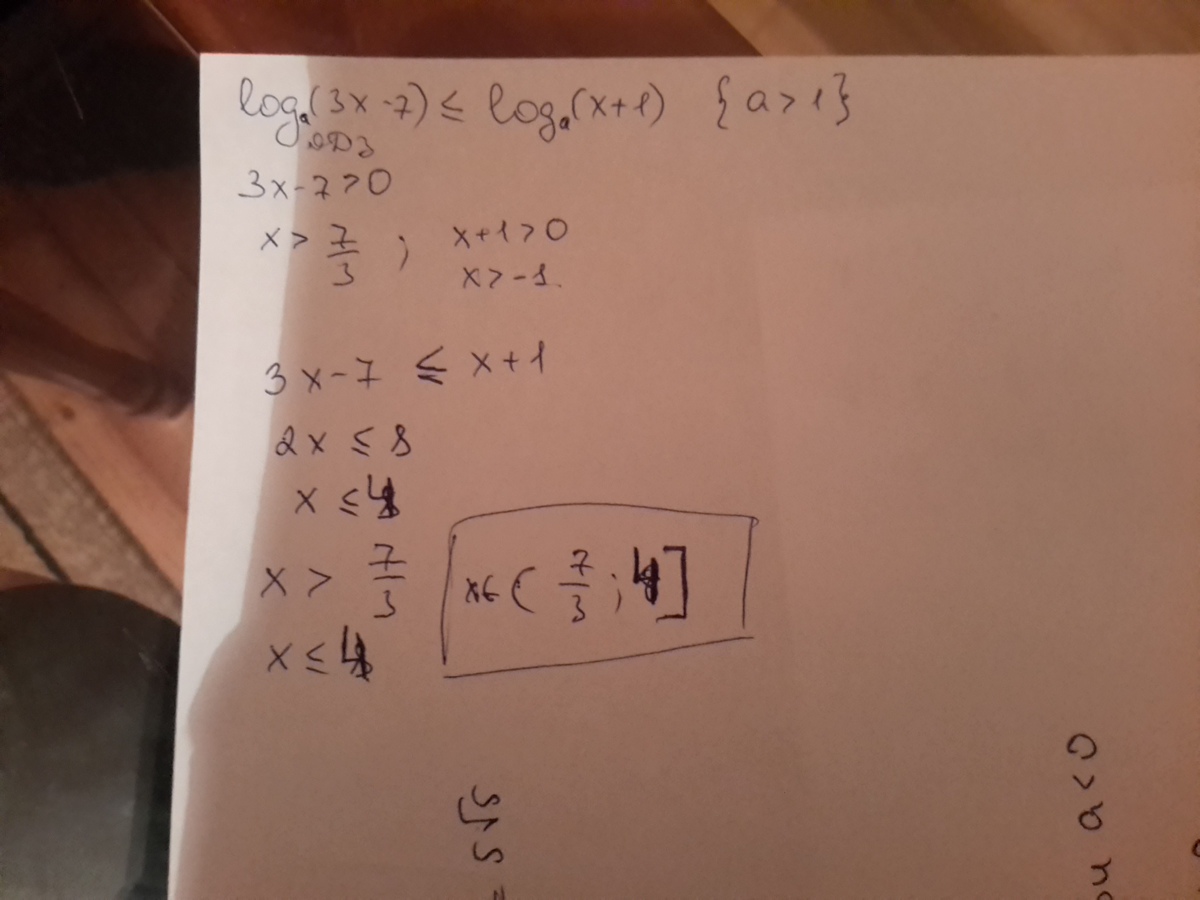 logₐ(3x-7) ≤ logₐ(x+1) {a>1}
ОДЗ
3x-7>0
x> 7/3 ; x+1>0
x>-1.
3x-7 ≤ x+1
2x ≤ 8
x ≤ 4
x > 7/3
x∈( 7/3 ; 4]
x ≤ 4
a<0